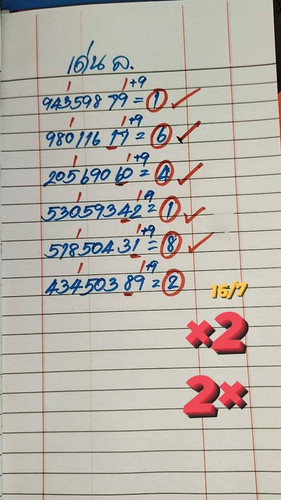 เด่น ล.
1 1+9
94359879 = 1 ✓
1 1+9
98011617 = 6 ✓
1 1+9
20569060 = 4 ✓
1 1+9
53059342 = 1 ✓
1 1+9
57850431 = 8 ✓
1 1+9
43450389 = 2
16/7
×2
2×